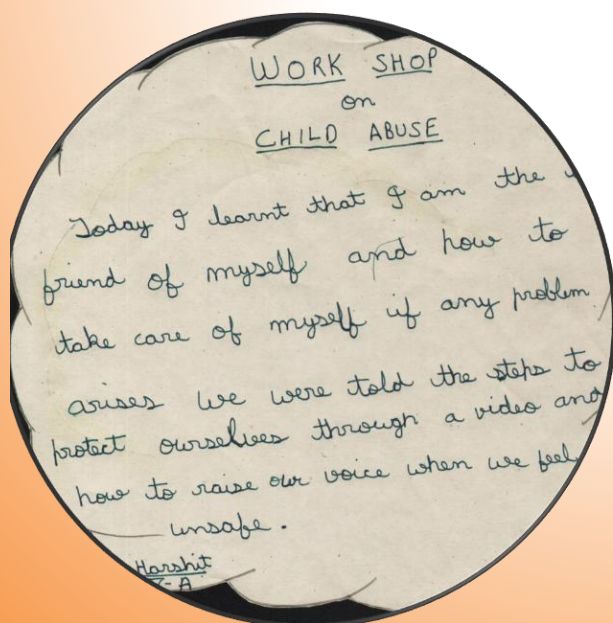 WORK SHOP
on
CHILD ABUSE
Today I learnt that I am the
friend of myself and how to
take care of myself if any problem
arises we were told the steps to
protect ourselves through a video and
how to raise our voice when we feel
unsafe.
Harshit